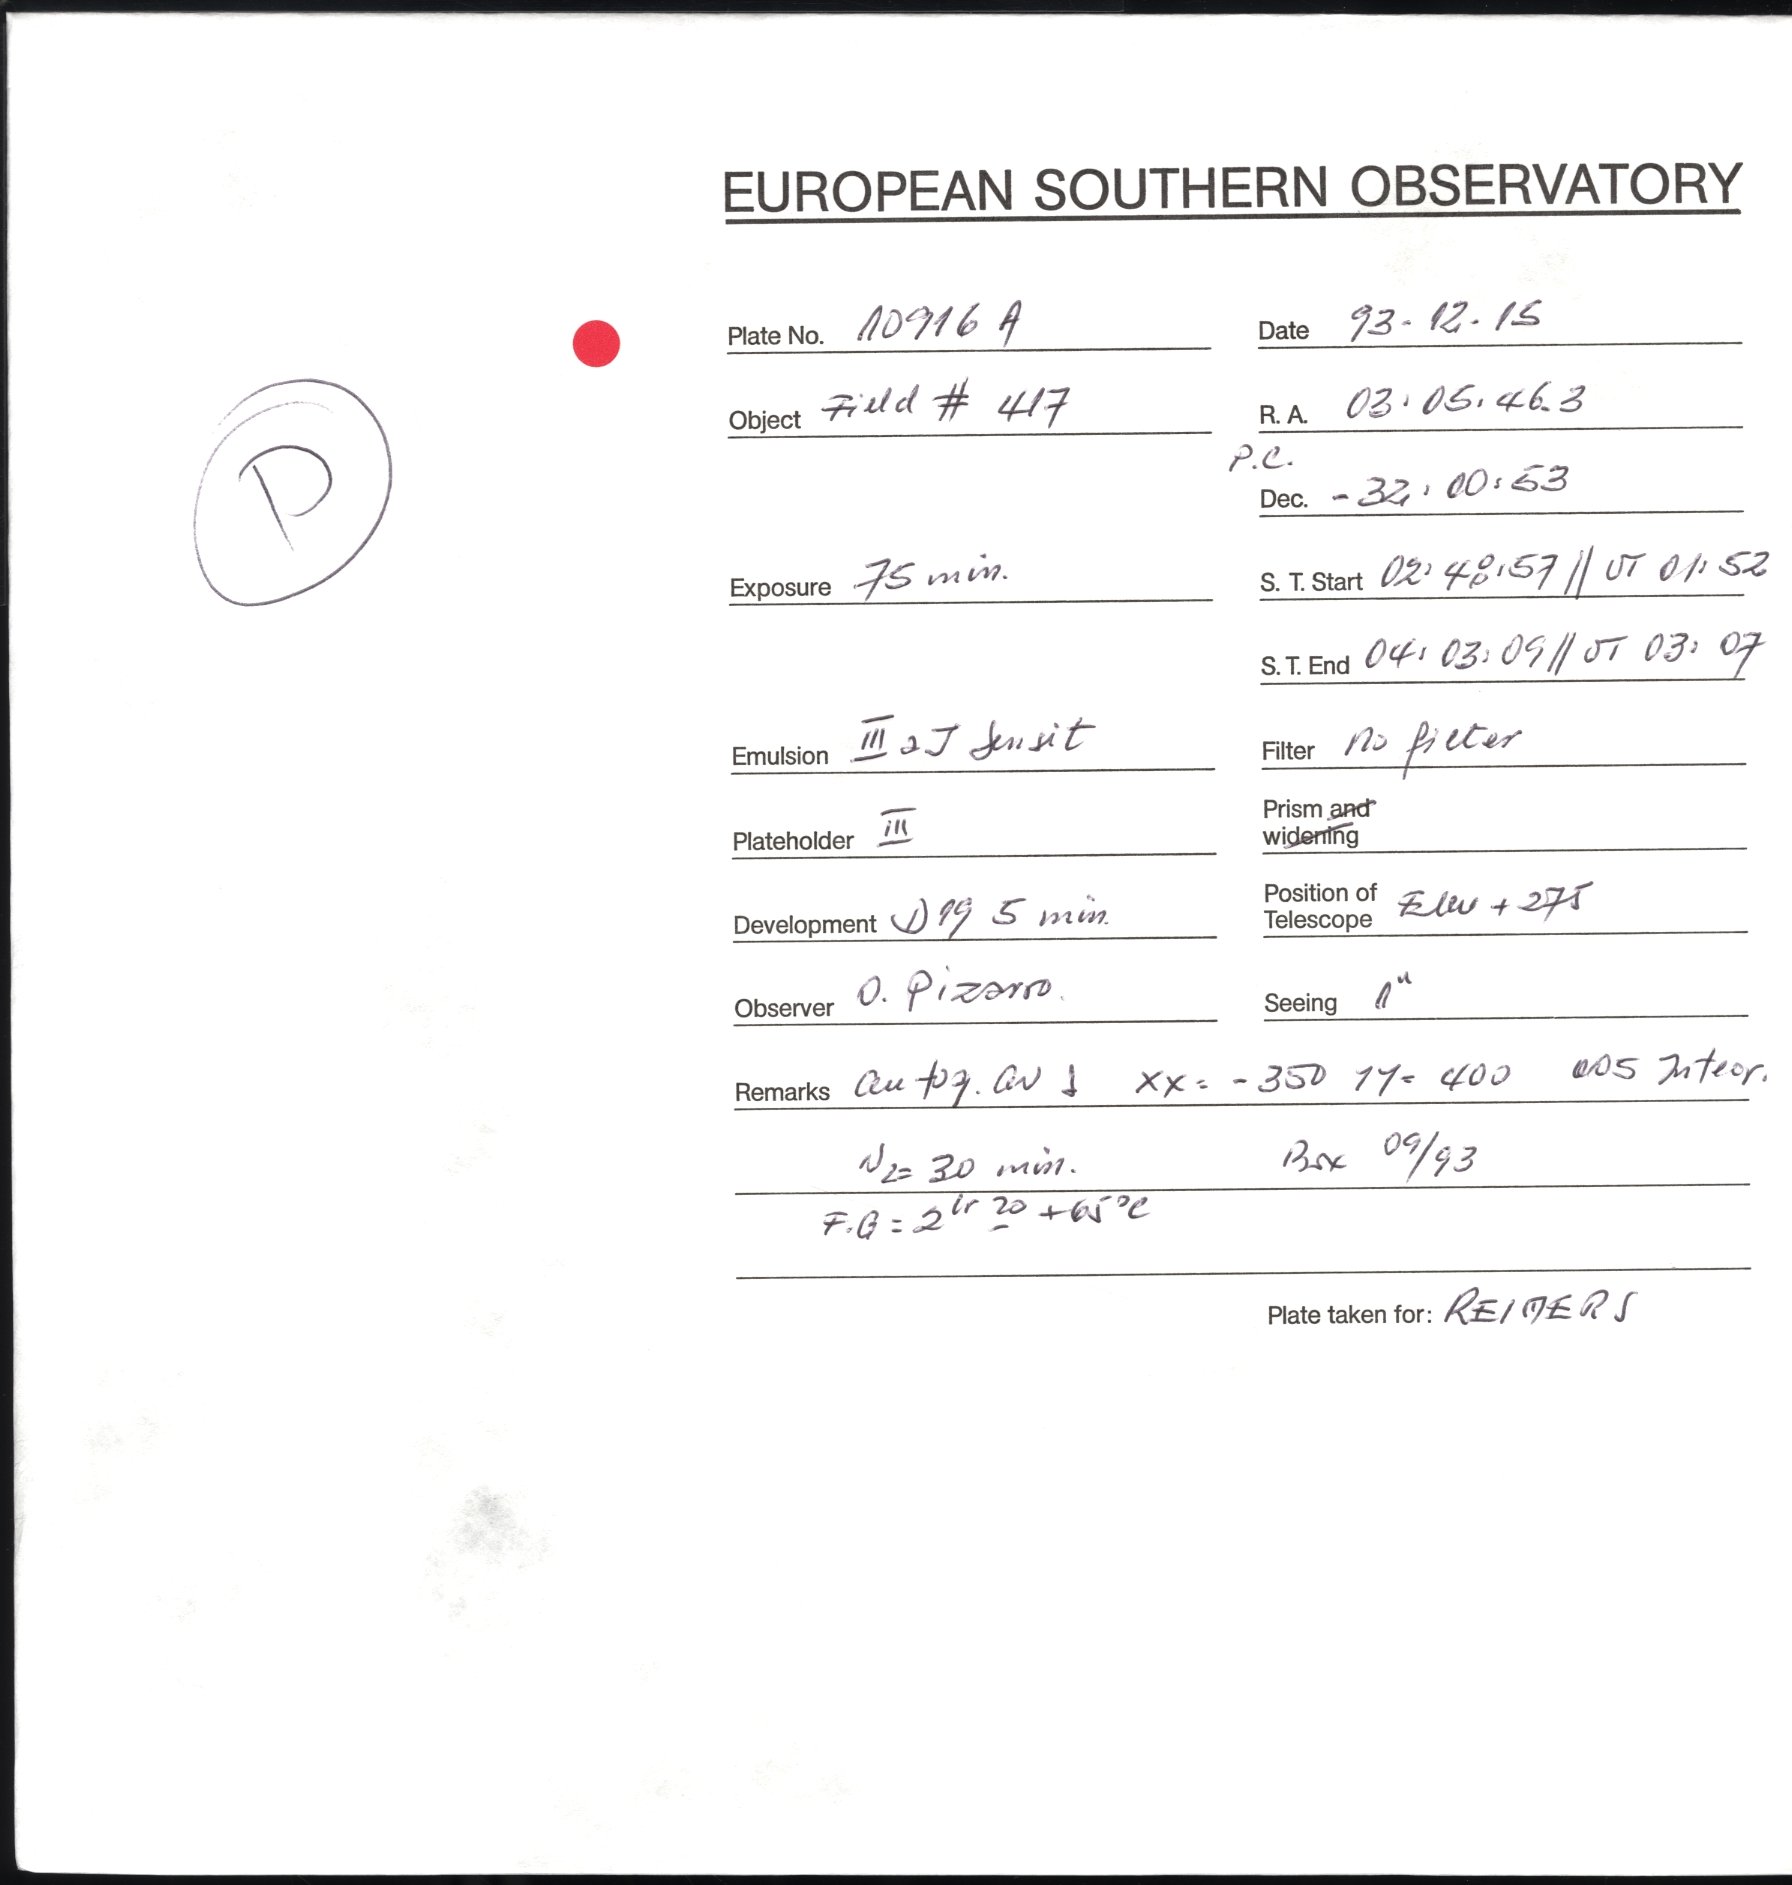 EUROPEAN SOUTHERN OBSERVATORY
Plate No. 10916 A
Date 93-12-15
Object Field # 417
R. A. 03:05:46.3
P
P.C.
Dec. -32:00:53
Exposure 75 min.
S. T. Start 02:48:57 // UT 01:52
S. T. End 04:03:09 // UT 03:07
Emulsion III aJ sensit
Filter No filter
Plateholder III
Prism and
widening
Development D19 5 min.
Position of
Telescope Elev + 275
Observer O. Pizarro.
Seeing 1"
Remarks XX = -350 YY = 400
N2= 30 min. Box 09/93
F.G = 2hr 20 +65°C
Plate taken for: REIMERS